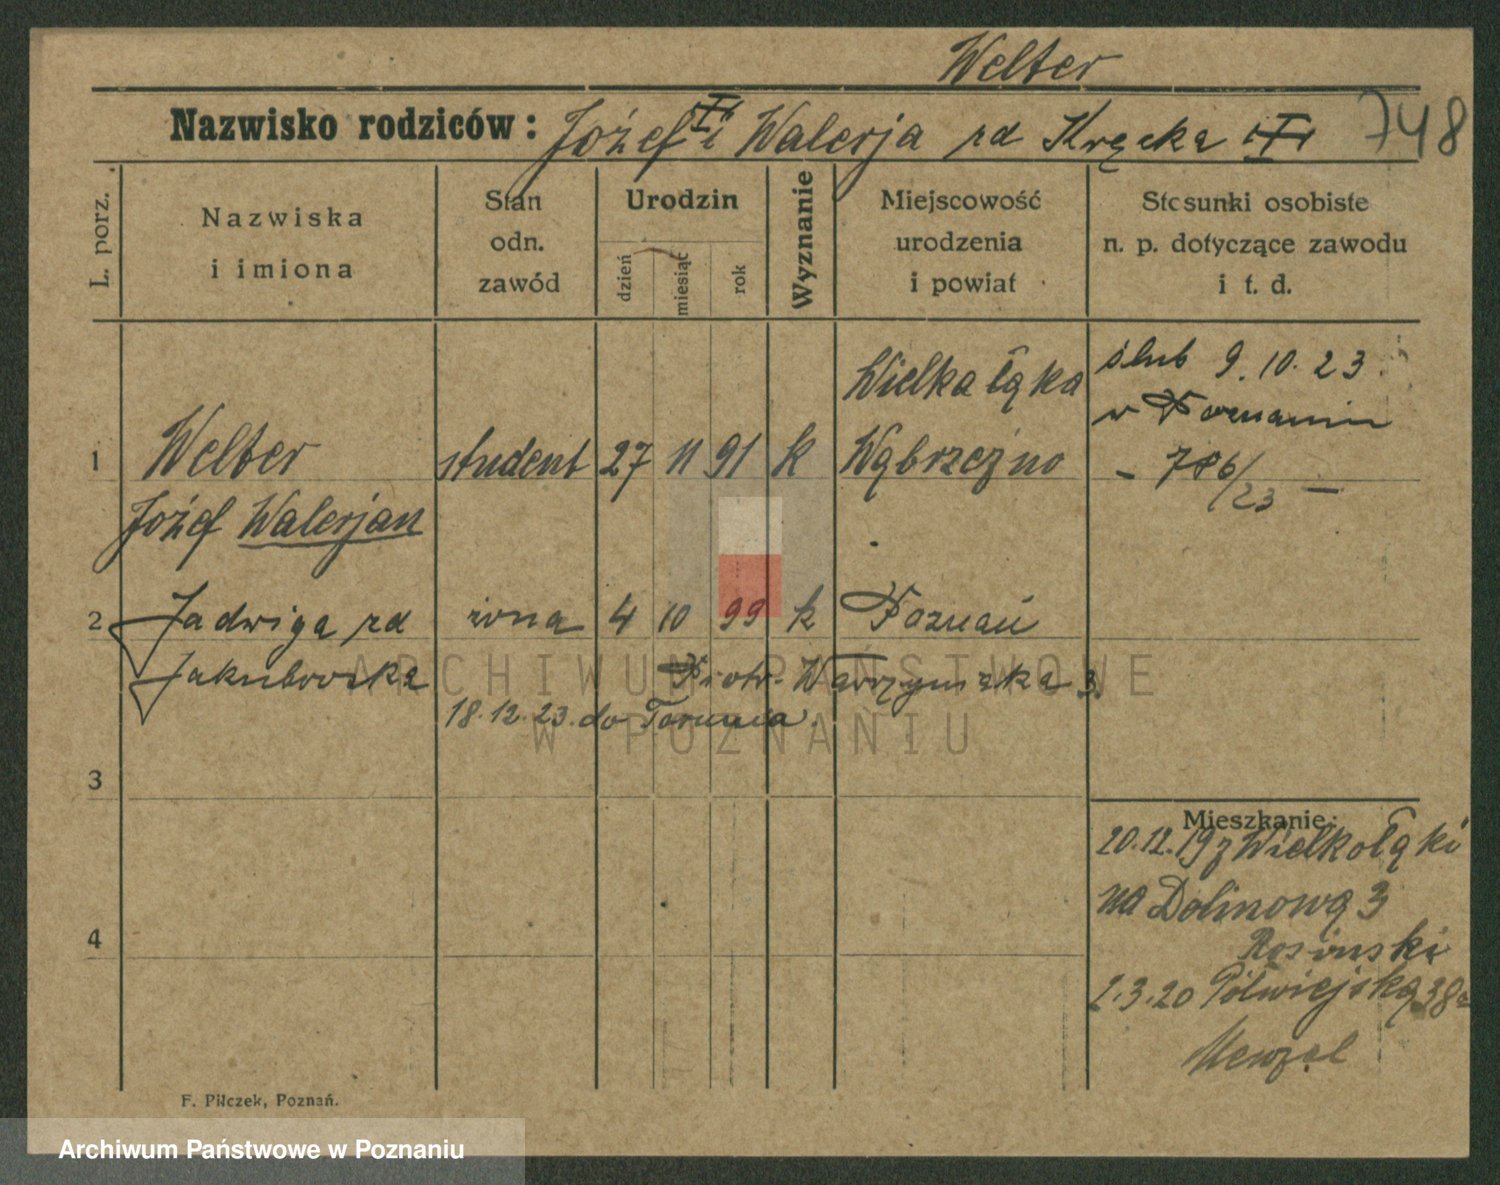 Welter
Nazwisko rodziców: Józef i Walerja zd Kręcka 748
L. porz.
Nazwiska
i imiona
Stan
odn.
zawód
Urodzin
dzień
miesiąc
rok
Wyznanie
Miejscowość
urodzenia
i powiat
Stosunki osobiste
n. p. dotyczące zawodu
i t. d.
Wielka Łąka
ślub 9. 10. 23.
w Poznaniu
1 Welter student 27 11 91 k Wąbrzeźno
- 786/23 -
Józef Walerjan
2 Jadwiga zd żona 4 10 99 k Poznań
Jakubowska Piotr. Wawrzyniaka 3.
18.12.23. do Torunia.
3
Mieszkanie:
20.12.19 z Wielkołąki
na Dolinową 3
4
Rosinski
2.3.20 Półwiejską 38a
Menzel
F. Pilczek, Poznań.
ARCHIWUM PAŃSTWOWE
W POZNANIU
Archiwum Państwowe w Poznaniu